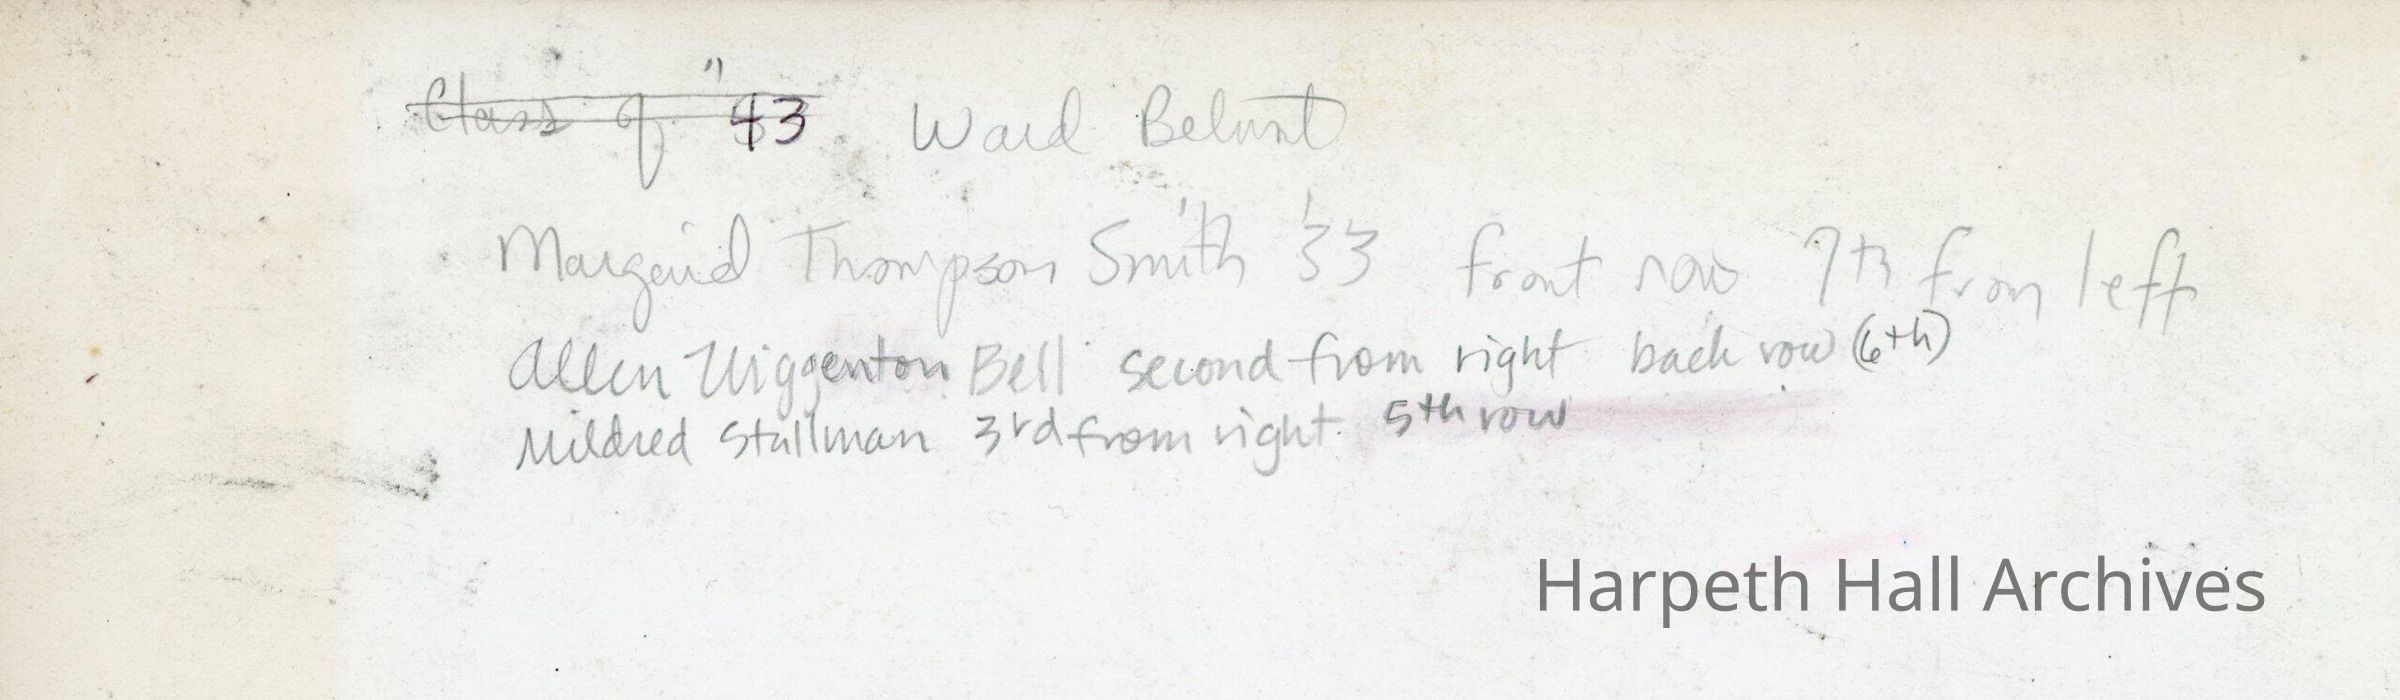 Class of "43 Ward Belmont
Margaret Thompson Smith '33 front row 7th from left
Allen Wiggenton Bell second from right back row (6th)
Mildred Stallman 3rd from right 5th row
Harpeth Hall Archives